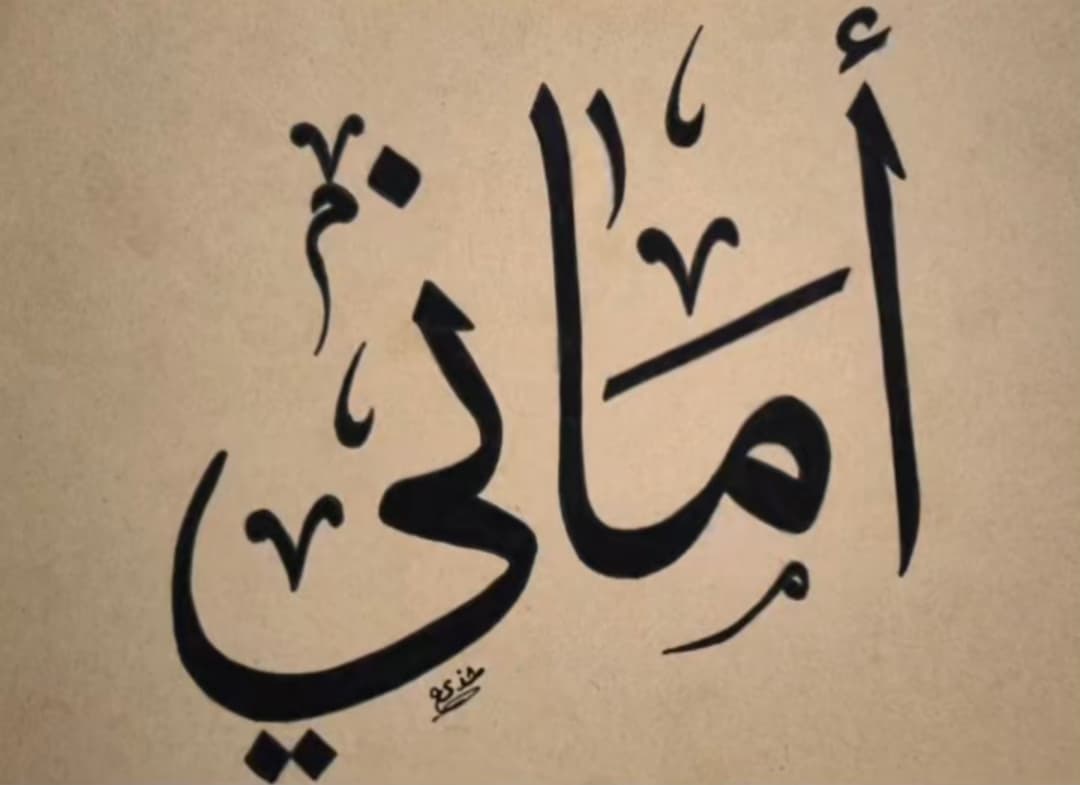 أماني